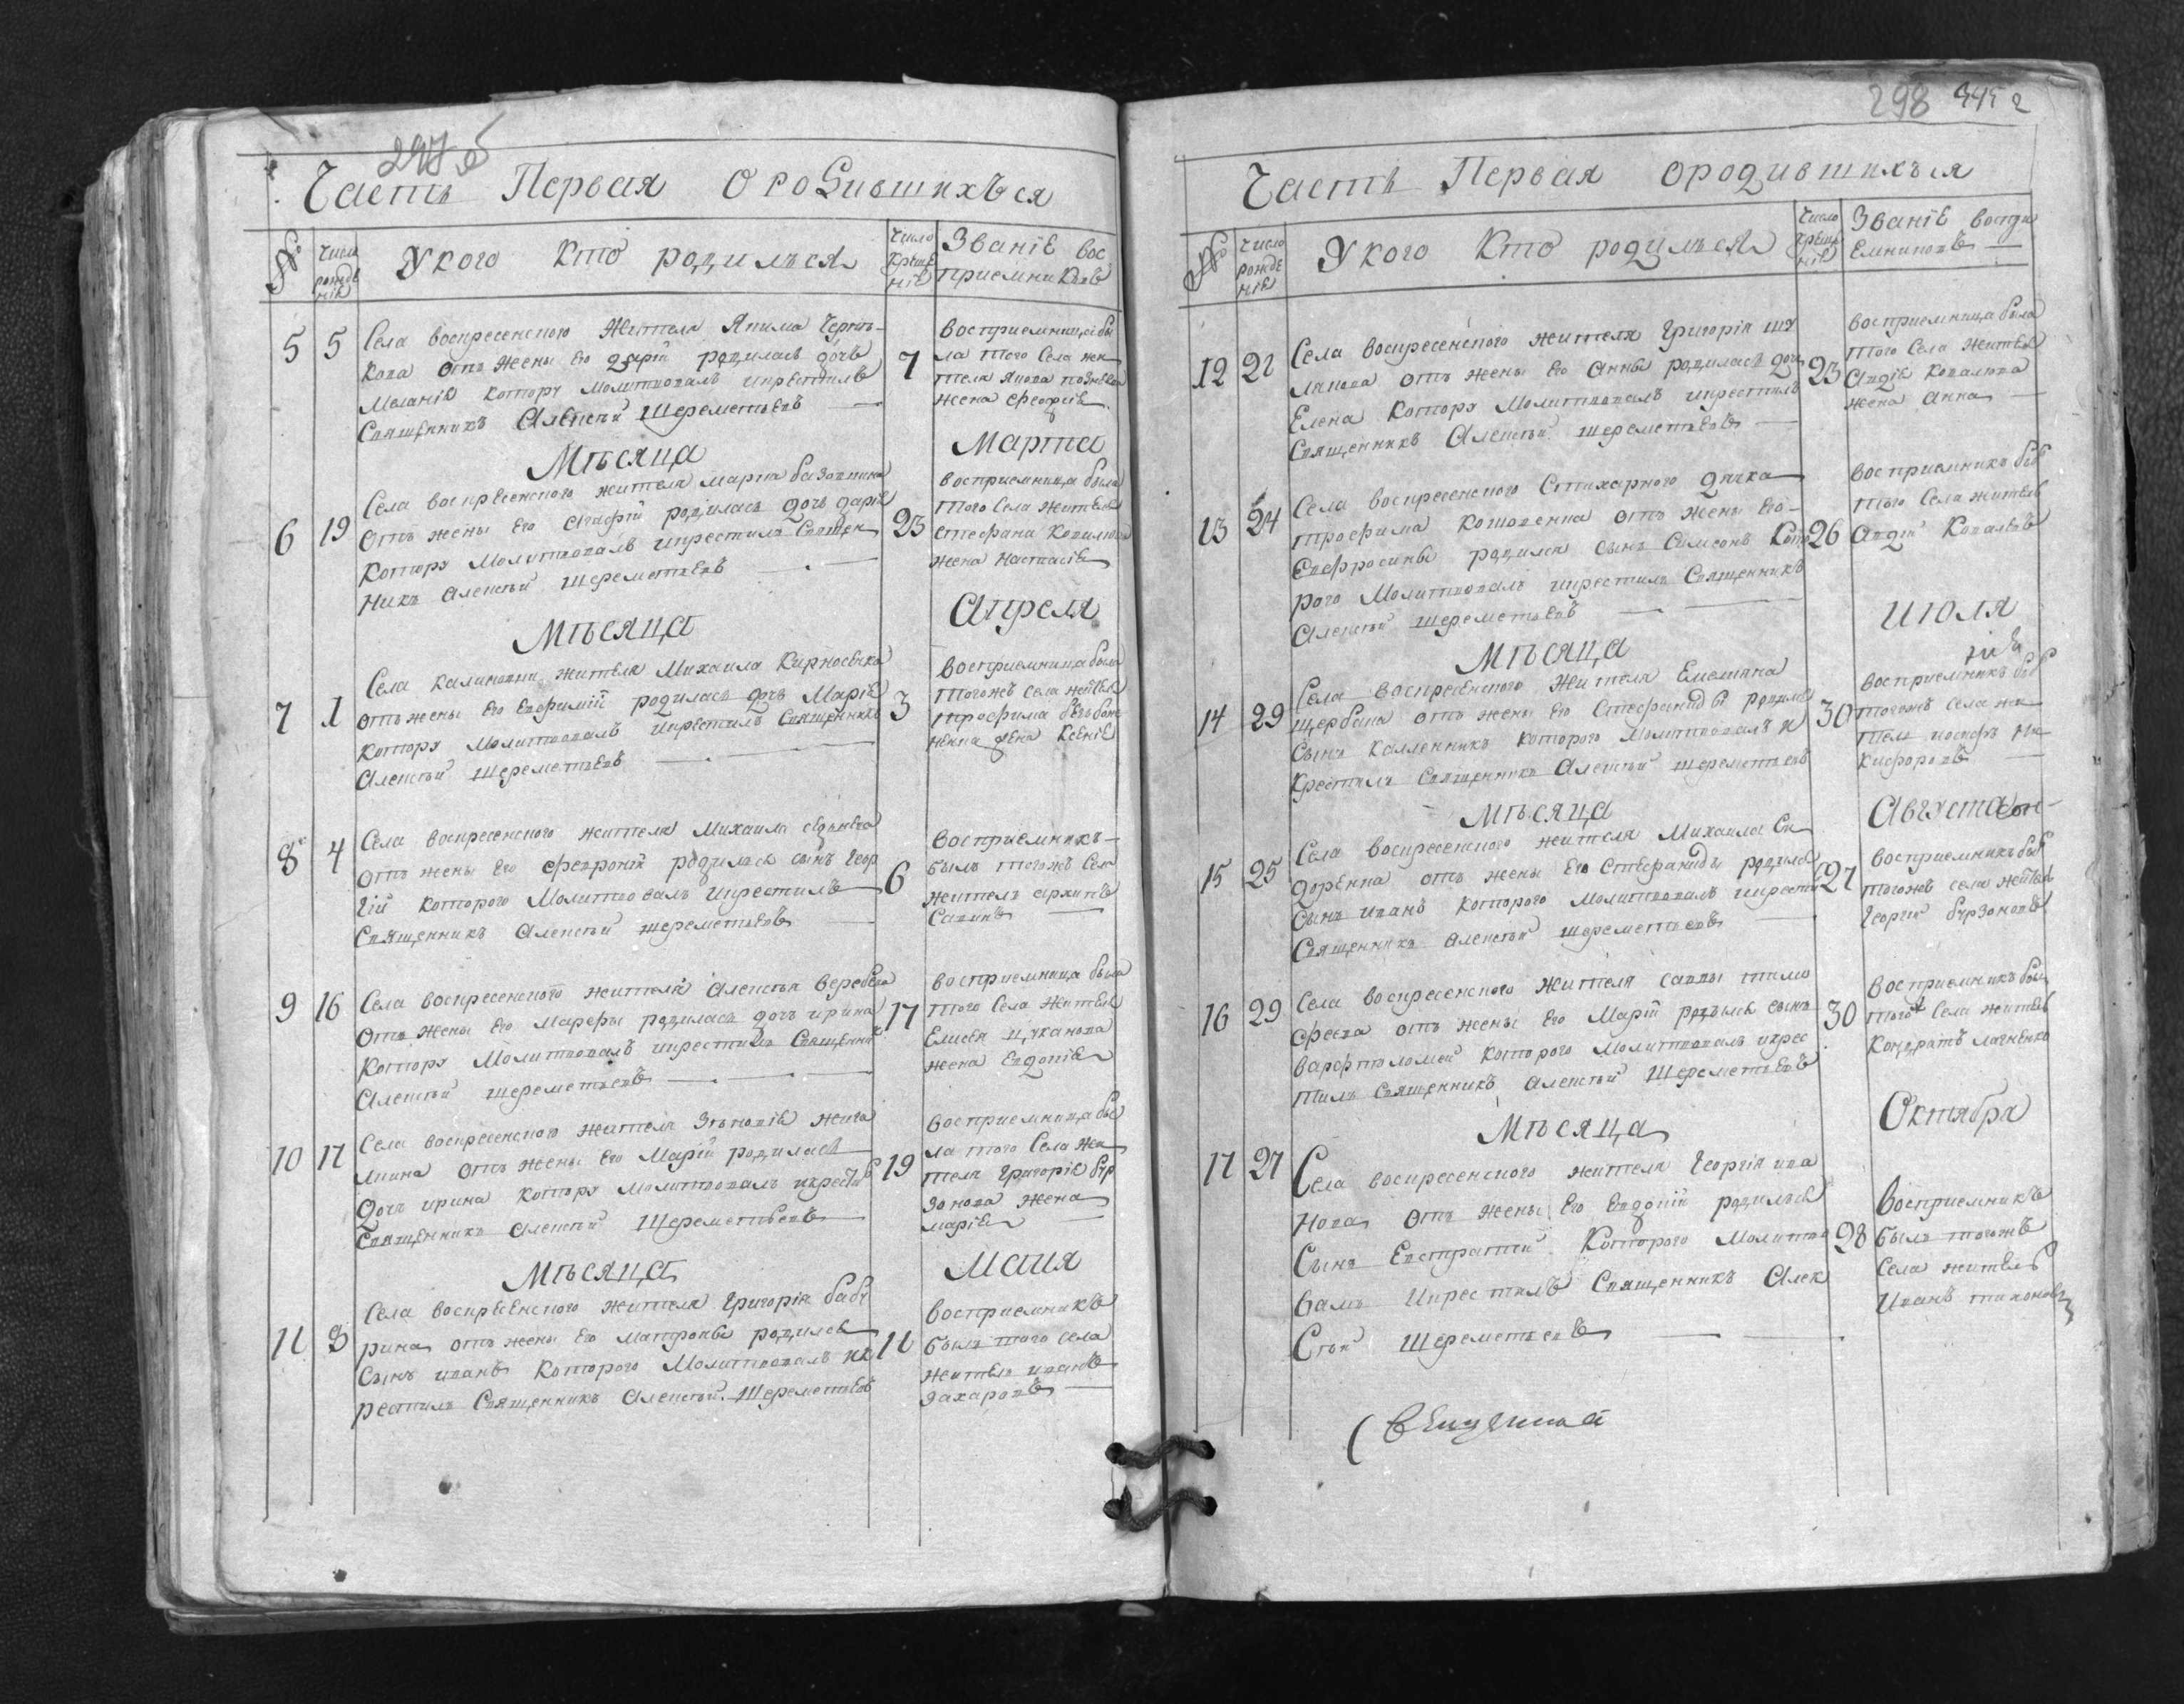 Часть Первая ородившихъся
№
Число рожденія
Укого Кто родилься
Число крещенія
Званіе восприемниковъ
5 5 Села воспресенского Жителя Якима
кова отъ жены Его Дарій родилась дочь
Меланія котору Молитвовалъ икрестилъ
Священникъ Алексѣй Шереметьевъ
7 восприемница бы
ла того Села жи
теля Якова
жена
Мѣсяца Марта
6 19 Села воскресенского жителя Марка
отъ жены Его Агафіи родилась дочь Дарія
котору Молитвовалъ икрестилъ Священ
никъ Алексѣй Шереметьевъ
23 восприемница была
того Села жителя
Стефана
жена Настасія
Мѣсяца Апреля
7 1 Села Калиновки жителя Михаила
отъ жены Его Евфиміи родилась дочь Марія
котору Молитвовалъ икрестилъ Священникъ
Алексѣй Шереметьевъ
3 восприемница была
тогожъ села жителя
Трофима
жена Ксенія
8 4 Села воскресенского жителя Михаила
отъ жены Его Февроніи родился сынъ Геор
гій которого Молитвовалъ икрестилъ
Священникъ Алексѣй Шереметьевъ
6 восприемникъ
былъ тогожъ Села
житель Архипъ
Савинъ
9 16 Села воскресенского жителя Алексѣя
отъ жены Его Марфы родилась дочь ирина
котору Молитвовалъ икрестилъ Священни
Алексѣй Шереметьевъ
17 восприемница была
того Села жителя
Елисея Цуканова
жена Евдокія
10 17 Села воскресенского жителя Зѣновія жига
лкина отъ жены Его Маріи родилась
Дочь ирина котору Молитвовалъ икрестилъ
Священникъ Алексѣй Шереметьевъ
19 восприемница бы
ла того Села жи
теля Григорія бур
зонова жена
марія
Мѣсяца Маия
11 8 Села воскресенского жителя Григорія бабу
рина отъ жены Его Матроны родился
Сынъ иванъ которого Молитвовалъ ик
рестилъ Священникъ Алексѣй Шереметьевъ
11 восприемникъ
былъ того села
житель иванъ
Захаровъ
298
Часть Первая ородившихъся
№
Число рожденія
Укого Кто родилься
Число крещенія
Званіе воспри
емниковъ
12 22 Села воскресенского жителя Григорія шу
макова отъ жены Его Анны родилась дочь
Елена котору Молитвовалъ икрестилъ
Священникъ Алексѣй Шереметьевъ
23 восприемница была
того Села жителя
Авдія Ковалева
жена Анна
13 24 Села воскресенского Стихарного дячка
Трофима отъ жены Его
Евфросины родился сынъ Симеонъ кото
рого Молитвовалъ икрестилъ Священникъ
Алексѣй Шереметьевъ
26 восприемникъ былъ
того Села житель
Авдій Ковалевъ
Мѣсяца июля
14 29 Села воскресенского жителя Емельяна
щербака отъ жены Его Стефаниды родился
Сынъ Каллиникъ которого Молитвовалъ и
крестилъ Священникъ Алексѣй Шереметьевъ
30 восприемникъ былъ
тогожъ села жи
тель иосифъ Ни
кифоровъ
Мѣсяца Августа
15 25 Села воскресенского жителя Михаила Си
доренка отъ жены Его Стефаниды родился
Сынъ иванъ которого Молитвовалъ икрести
Священникъ Алексѣй Шереметьевъ
27 восприемникъ былъ
тогожъ села житель
Георгій бурзоновъ
16 29 Села воскресенского жителя саввы тимо
феева отъ жены Его Маріи родился сынъ
варфтоломей которого Молитвовалъ икрес
тилъ Священникъ Алексѣй Шереметьевъ
30 восприемникъ былъ
того Села житель
Кондратъ
Мѣсяца Октября
17 27 Села воскресенского жителя Георгія ива
нова отъ жены Его Евдокіи родилься
Сынъ Евстратій Которого Молитво
валъ Икрестилъ Священникъ Алек
сѣй Шереметьевъ
28 восприемникъ
былъ тогожъ
Села житель
Иванъ